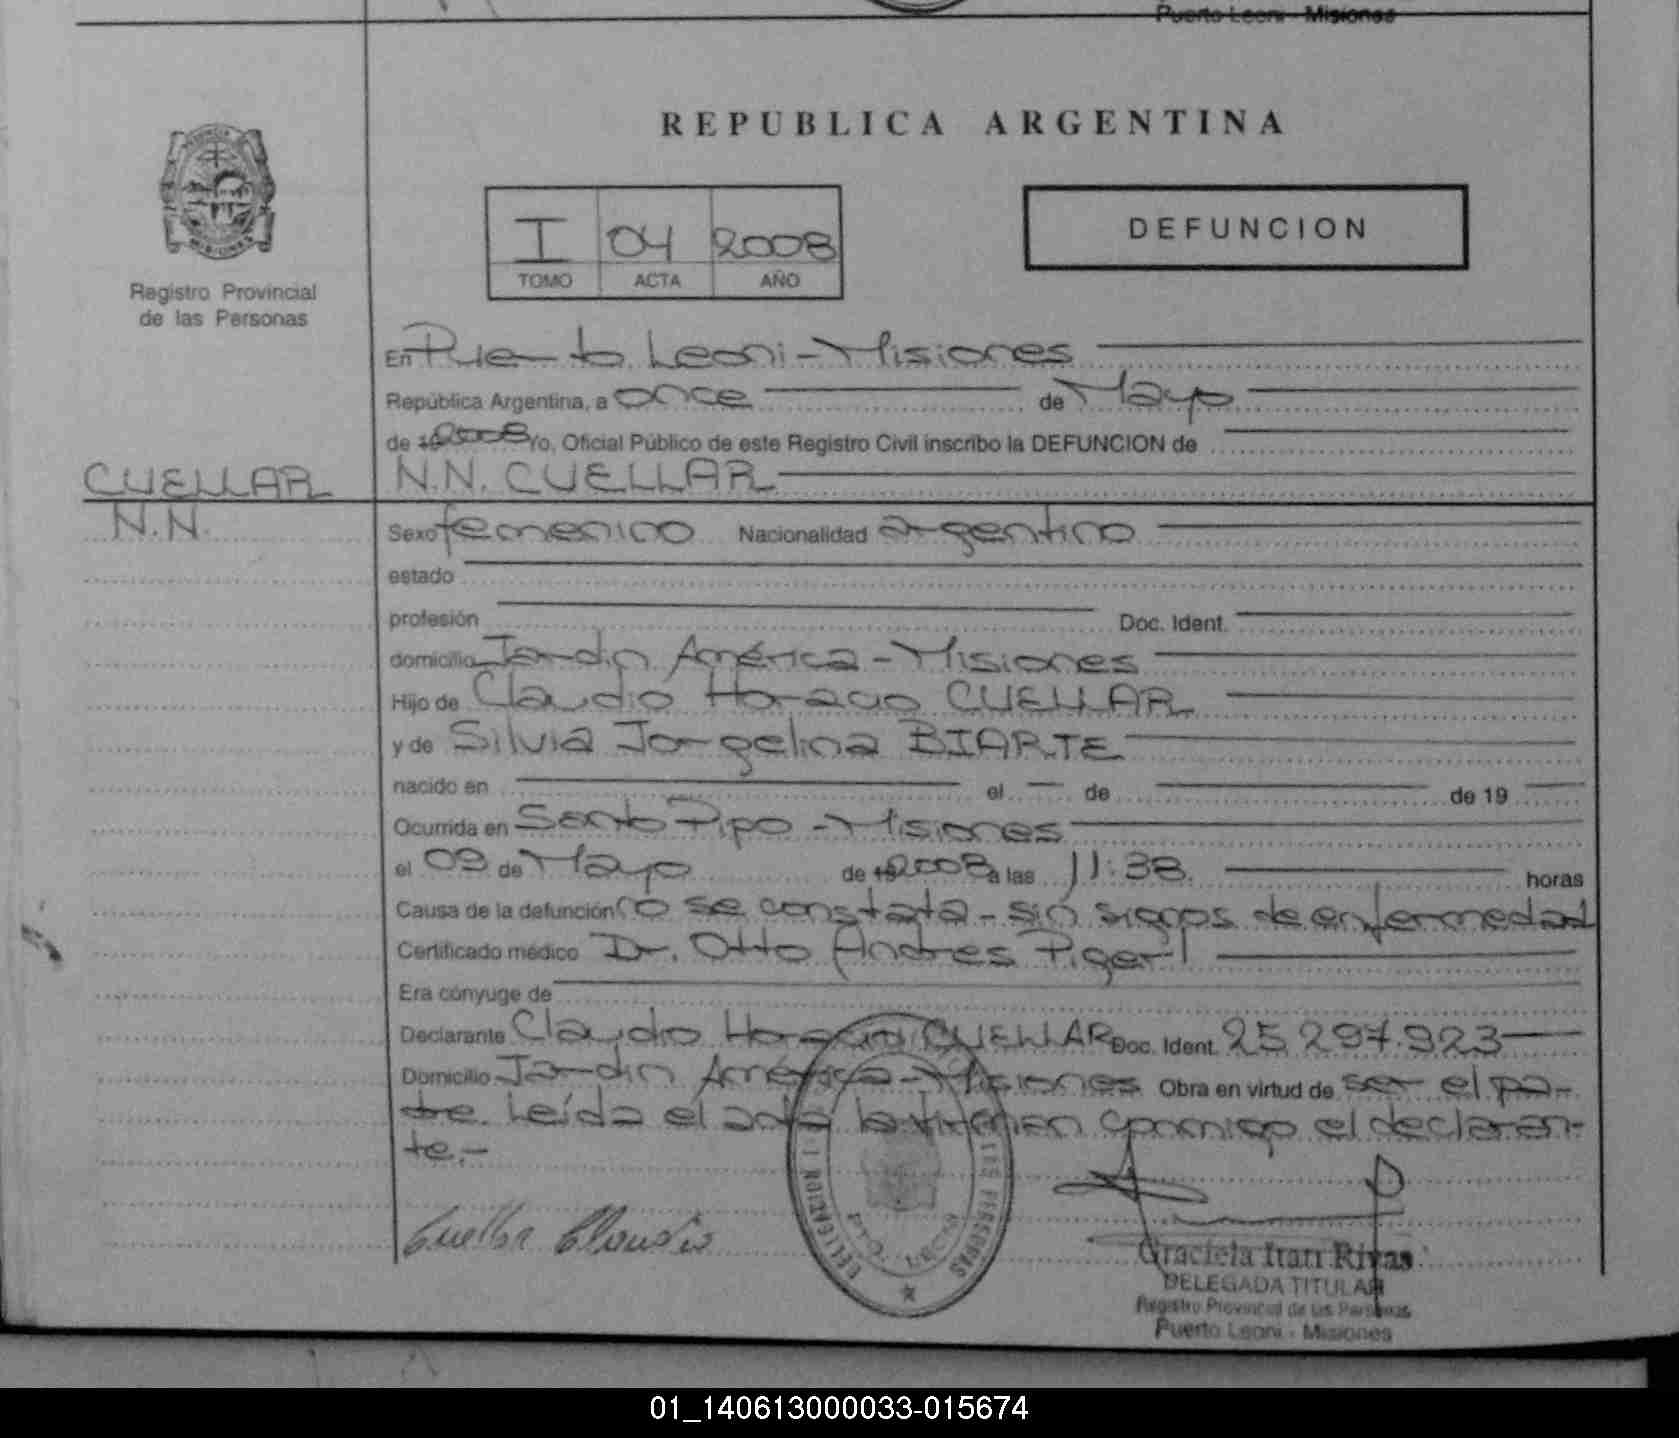 Puerto Leoni - Misiones
REPUBLICA ARGENTINA
I 04 2008
TOMO ACTA AÑO
DEFUNCION
Registro Provincial
de las Personas
En Puerto Leoni - Misiones
República Argentina, a once de Mayo
de 19 2008 Yo, Oficial Público de este Registro Civil inscribo la DEFUNCION de
CUELLAR N.N. CUELLAR
N.N.
Sexo femenino Nacionalidad argentino
estado
profesión Doc. Ident.
domicilio Jardin América - Misiones
Hijo de Claudio Horacio CUELLAR
y de Silvia Jorgelina BIARTE
nacido en el de de 19
Ocurrida en Santo Pipo - Misiones
el 09 de Mayo de 19 2008 a las 11:38 horas
Causa de la defunción no se constata - sin signos de enfermedad
Certificado médico Dr. Otto Andres Pigerl
Era cónyuge de
Declarante Claudio Horacio CUELLAR Doc. Ident. 25.297.923
Domicilio Jardin América - Misiones Obra en virtud de ser el pa-
dre. Leída el acta la firman conmigo el declaran-
te.-
Cuellar Claudio
DELEGACION
PTO. LEONI
PERSONAS
Graciela Itati Rivas
DELEGADA TITULAR
Registro Provincial de las Personas
Puerto Leoni - Misiones
01_140613000033-015674